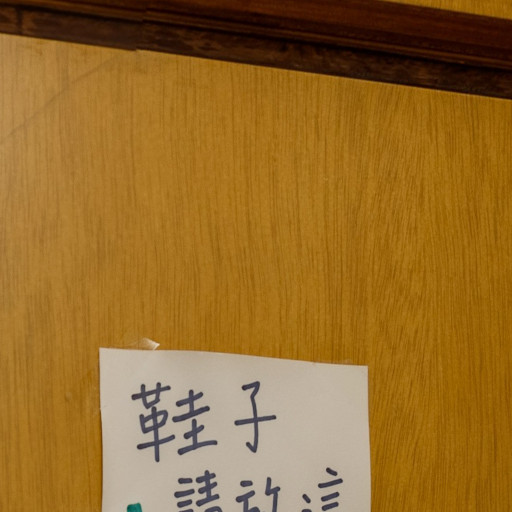 鞋子
請放這